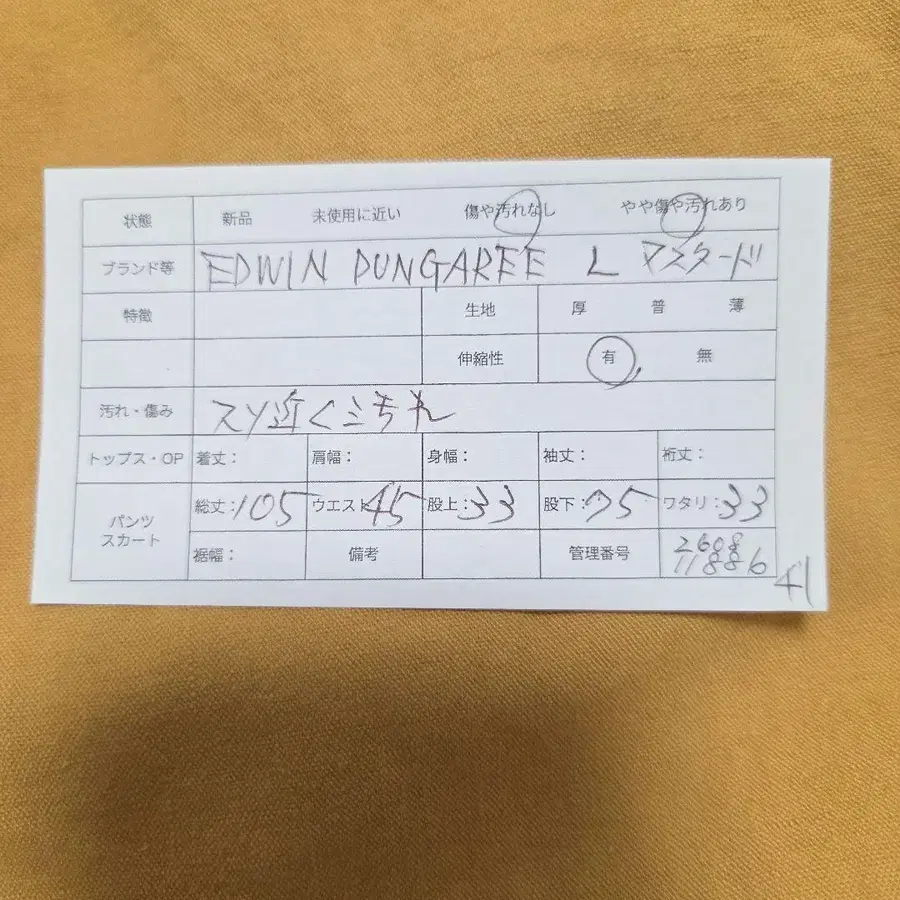 状態 新品 未使用に近い 傷や汚れなし やや傷や汚れあり
ブランド等 EDWIN DUNGAREE L マスタード
特徴 生地 厚 普 薄
伸縮性 有 無
汚れ・傷み スソ近くミ汚れ
トップス・OP 着丈: 肩幅: 身幅: 袖丈: 裄丈:
パンツ スカート
総丈:105 ウエスト45 股上:33 股下:75 ワタリ:33
裾幅: 備考 管理番号 2608
11886
41